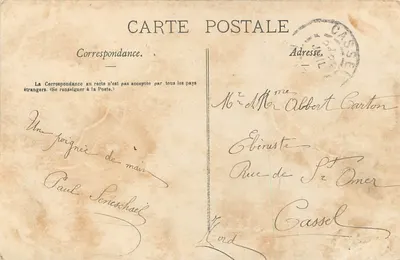 CARTE POSTALE
Correspondance.
Adresse
La Correspondance au recto n'est pas acceptée par tous les pays
étrangers. (Se renseigner à la Poste.)
CASSEL
Un poignée de main
Paul Seneschael
Mr et Mme Albert Carton
Ebéniste
Rue de St Omer
Cassel
Nord